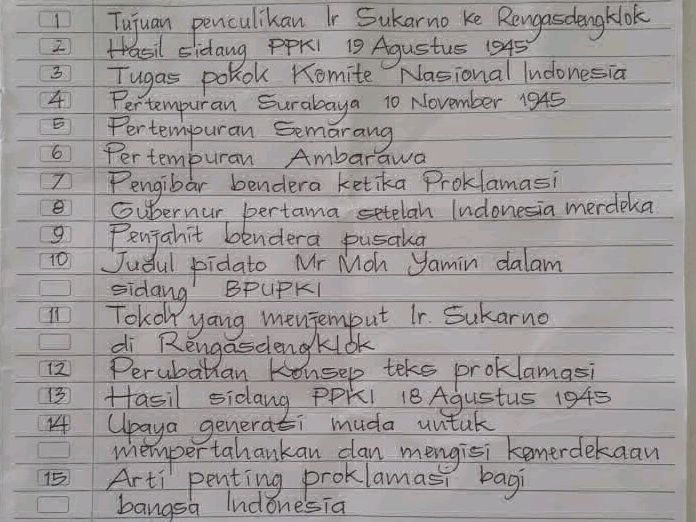 1 Tujuan penculikan Ir Sukarno ke Rengasdengklok
2 Hasil sidang PPKI 19 Agustus 1945
3 Tugas pokok Komite Nasional Indonesia
4 Pertempuran Surabaya 10 November 1945
5 Pertempuran Semarang
6 Pertempuran Ambarawa
7 Pengibar bendera ketika Proklamasi
8 Gubernur pertama setelah Indonesia merdeka
9 Penjahit bendera pusaka
10 Judul pidato Mr Moh Yamin dalam
sidang BPUPKI
11 Tokoh yang menjemput Ir. Sukarno
di Rengasdengklok
12 Perubahan Konsep teks proklamasi
13 Hasil sidang PPKI 18 Agustus 1945
14 Upaya generasi muda untuk
mempertahankan dan mengisi kemerdekaan
15 Arti penting proklamasi bagi
bangsa Indonesia